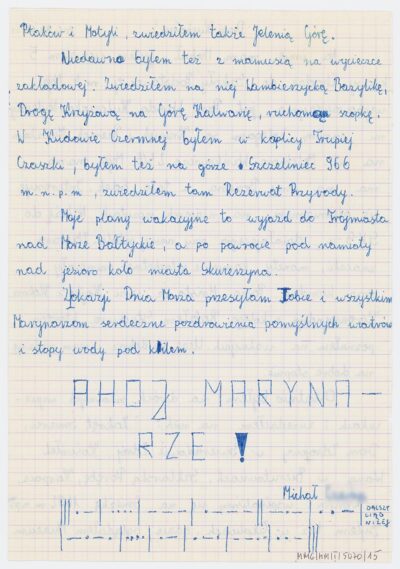 Ptaków i Motyli, zwiedziłem także Jelenią Górę.
Niedawno byłem też z mamusią na wycieczce
zakładowej. Zwiedziłem na niej Wambierzycką Bazylikę,
Drogę Krzyżową na Górę Kalwarię, ruchomą szopkę.
W Kudowie Czermnej byłem w kaplicy Trupiej
Czaszki, byłem też na górze Szczeliniec 966
m.n.p.m, zwiedziłem tam Rezerwat Przyrody.
Moje plany wakacyjne to wyjazd do Trójmiasta
nad Morze Bałtyckie, a po powrocie pod namioty
nad jezioro koło miasta Skwierzyna.
Z okazji Dnia Morza przesyłam Tobie i wszystkim
Marynarzom serdeczne pozdrowienia pomyślnych wiatrów
i stopy wody pod kilem.
AHOJ MARYNA-
RZE!
Michał
DALSZY
CIĄG
NIŻEJ
15